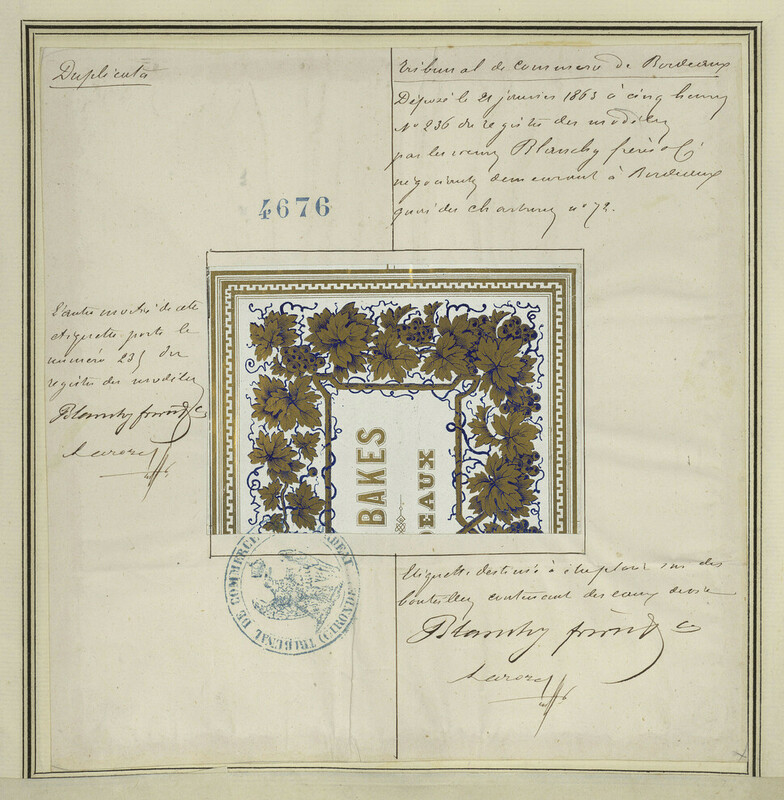 Duplicata
Tribunal de commerce de Bordeaux
Déposé le 21 janvier 1863 à cinq heures
No 236 du registre des modèles
par les sieurs Blanchy frères & Cie
négociants demeurant à Bordeaux
quai des Chartrons no 72.
4676
L'autre moitié de cette
etiquette porte le
numéro 235 du
registre des modèles
Blanchy frères & Cie
BAKES
DEAUX
TRIBUNAL DE COMMERCE DE BORDEAUX (GIRONDE)
Etiquette destinée à être placée sur des
bouteilles contenant des eaux de vie
Blanchy frères & Cie